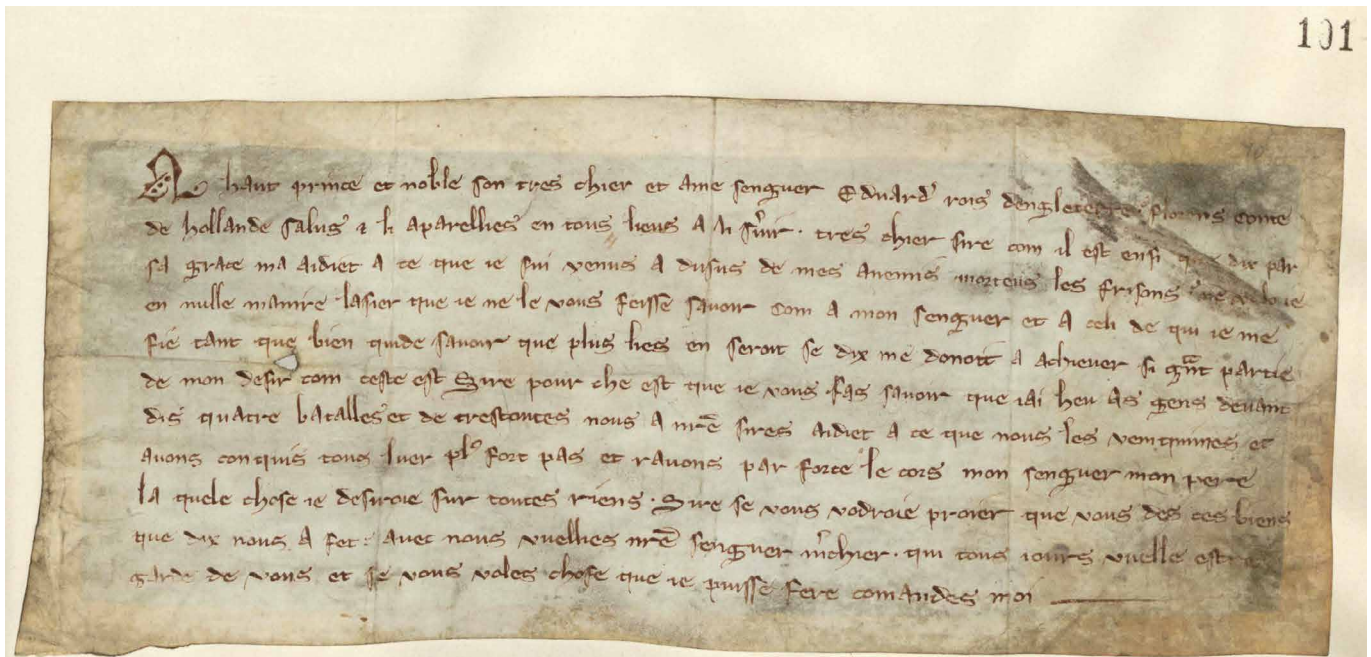 101
A haut prince et noble son tres chier et ame senguer Edward' rois dengleterre florens conte
de hollande salus & li aparellies en tous lieus a li s'uir . tres chier sire com il est ensi que dix par
sa grace ma aidiet a ce que ie sui venus a dusus de mes anemis morteus les frisons ne
en nulle manire lasier que ie ne le vous feisse savoir com a mon senguer et a celi de qui ie me
fie tant que bien quide savoir que plus lies en seroit se dix me donoit a achiever si g'nt partie
de mon desir com ceste est Sire pour che est que ie vous fas savoir que iai heu as gens devant
dis quatre batalles et de trestoutes nous a nr̄e sires aidiet a ce que nous les venquimes et
avons conquis tous luer pl' fort pas et ravons par force le cors mon senguer mon pere
la quele chose ie desiroie sur toutes riens . Sire se vous vodroie proier que vous des ces biens
que dix nous a fet . avec nous vuellies nr̄e senguer m'chier . qui tous iours vuelle estre
garde de vous et se vous voles chose que ie puisse fere comandes moi